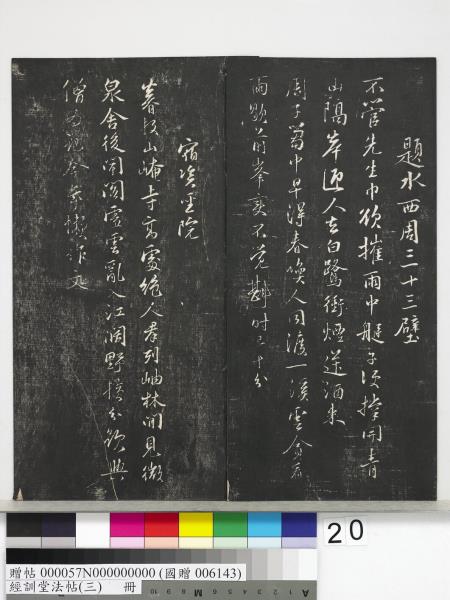 題水西周三十三壁
不管先生巾欲摧雨中艇子便撑開青
山隔岸迎人去白鷺衝煙送酒來
周子窗中早得春喚人同渡一溪雲貪看
雨歇前峯變不覺斟時已十分
宿資聖院
暮投山崦寺高處絶人羣列岫林間見微
泉舍後聞閣虛雲亂入江闊野橫分欲與
僧
20
贈帖 000057N000000000 (國贈 006143)
經訓堂法帖(三) 冊